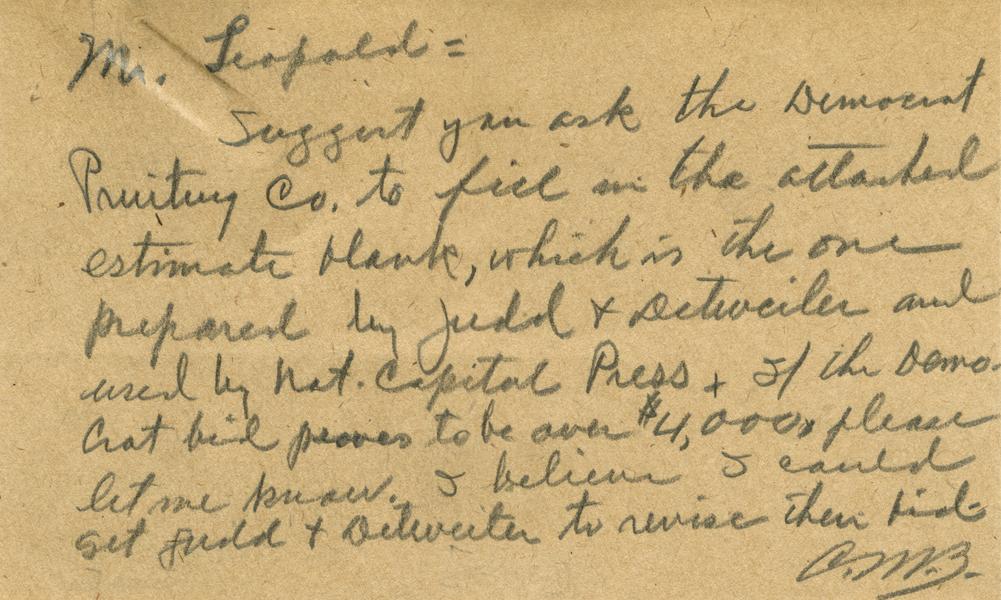 Mr. Leopold =
Suggest you ask the Democrat
Printing Co. to fill in the attached
estimate blank, which is the one
prepared by Judd & Detweiler and
used by Nat. Capital Press. If the Demo-
crat bid proves to be over $4,000, please
let me know. I believe I could
get Judd & Detweiler to revise their bid.
O.M.B.